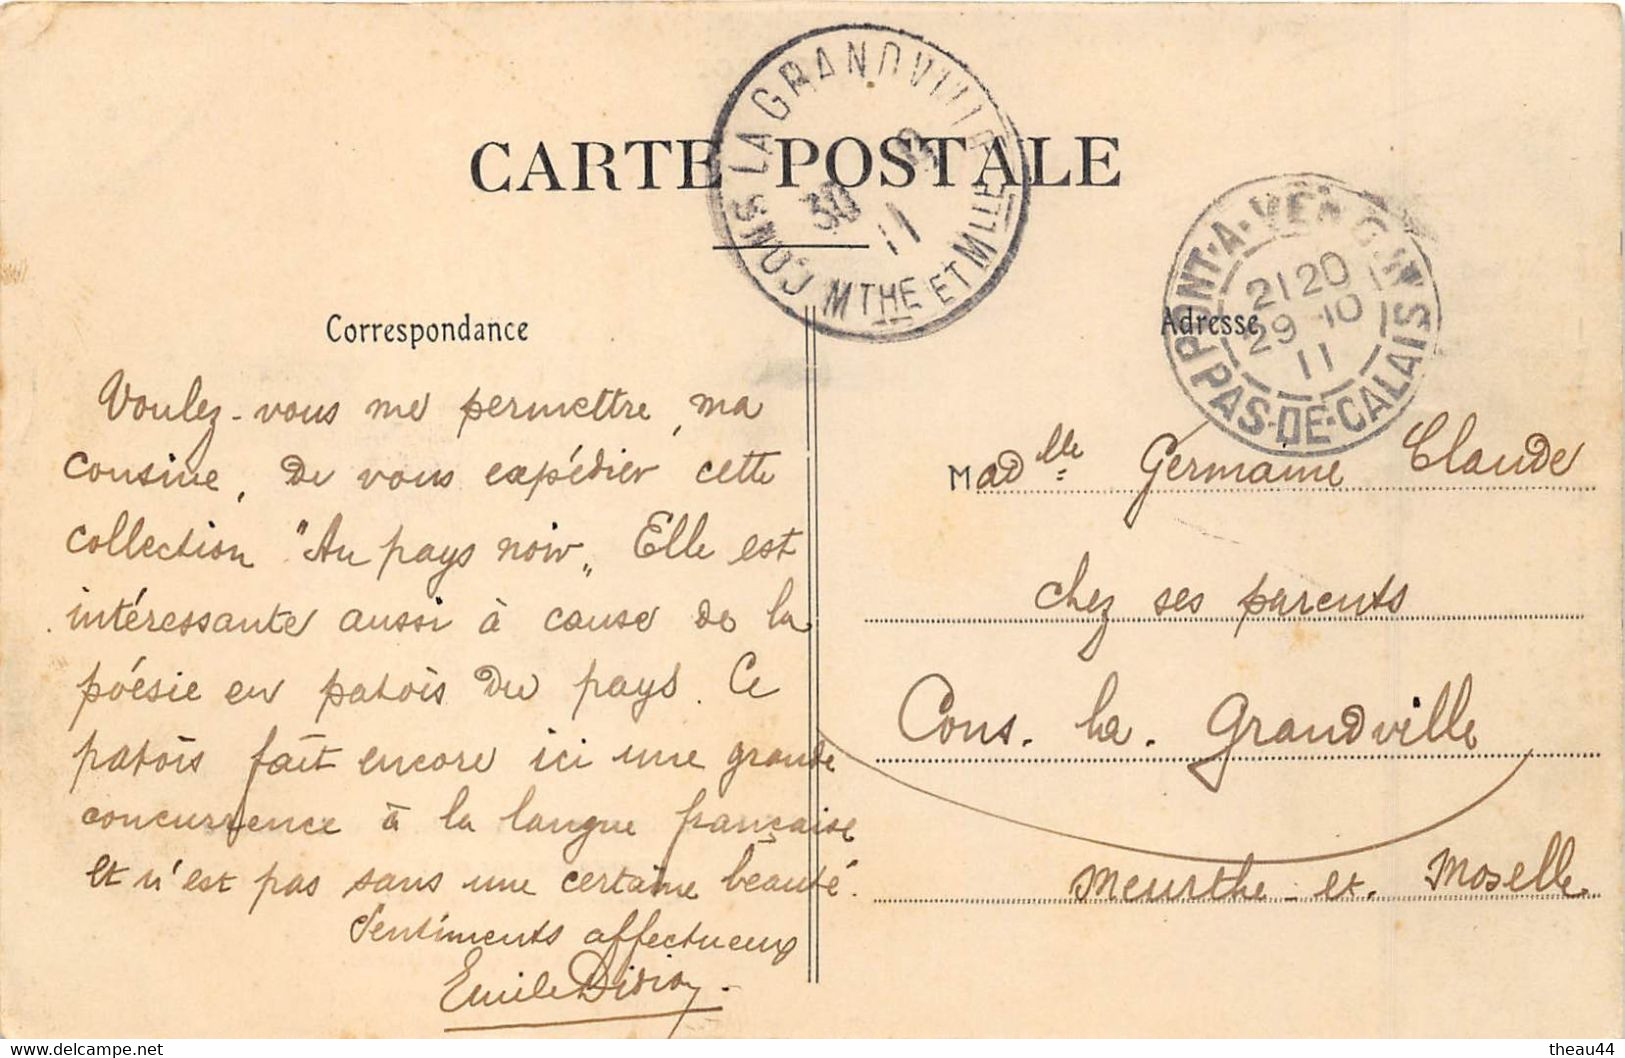 CARTE POSTALE
CONS LA GRANDVILLE
30 11
MTHE ET MLLE
PONT-A-VENDIN
2120
29-10
11
PAS-DE-CALAIS
Correspondance
Voulez-vous me permettre, ma
cousine, de vous expédier cette
collection "Au pays noir" Elle est
intéressante aussi à cause de la
poésie en patois du pays. Ce
patois fait encore ici une grande
concurrence à la langue française
et n'est pas sans une certaine beauté.
Sentiments affectueux
Emile Didion
Adresse
Madlle Germaine Claude
chez ses parents
Cons. la. Grandville
Meurthe-et-Moselle
theau44